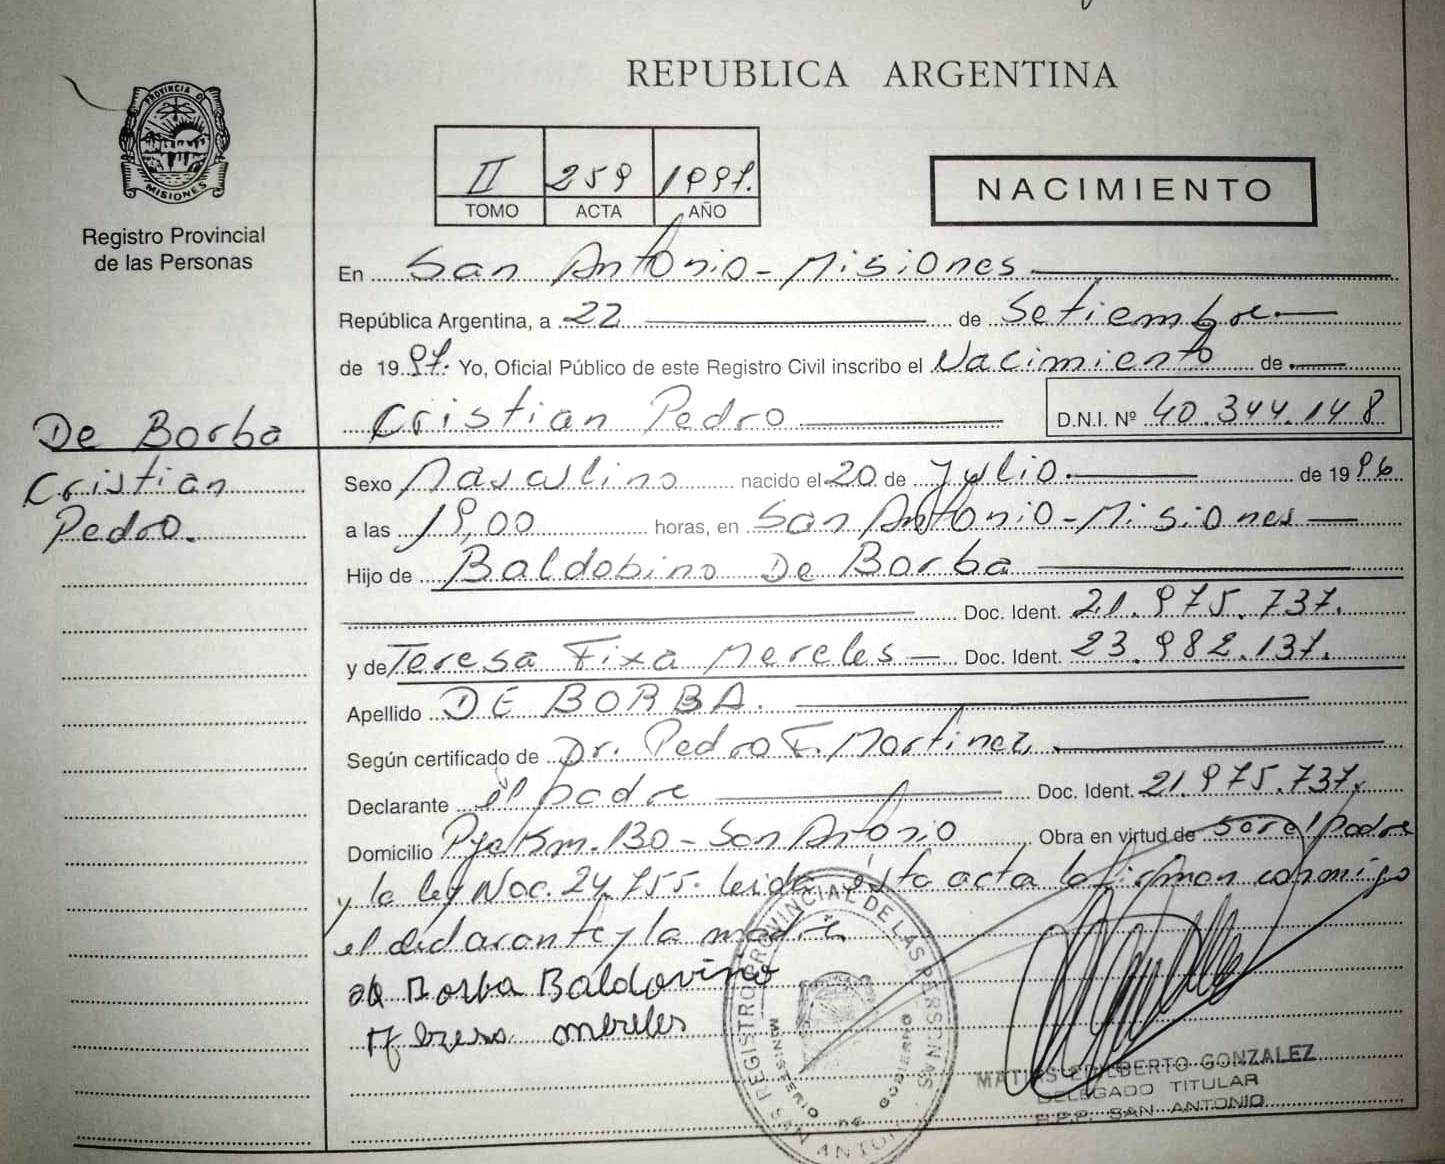 REPUBLICA ARGENTINA
PROVINCIA DE
MISIONES
Registro Provincial
de las Personas
II 259 1997.
TOMO ACTA AÑO
NACIMIENTO
En San Antonio - Misiones
República Argentina, a 22 de Setiembre
de 1997. Yo, Oficial Público de este Registro Civil inscribo el Nacimiento de
Cristian Pedro D.N.I. Nº 40.344.148
De Borba
Cristian
Pedro.
Sexo Masculino nacido el 20 de Julio de 1996
a las 19,00 horas, en San Antonio - Misiones
Hijo de Baldobino De Borba
Doc. Ident. 21.975.737.
y de Teresa Fixa Mereles Doc. Ident. 23.982.137.
Apellido DE BORBA.
Según certificado de Dr. Pedro F. Martinez
Declarante el padre Doc. Ident. 21.975.737.
Domicilio Pje Km. 130 - San Antonio Obra en virtud de ser el padre
y la ley Nac. 24.755. leida ésta acta la firman conmigo
el declarante y la madre
de Borba Baldovino
mereles
REGISTRO PROVINCIAL DE LAS PERSONAS
MINISTERIO DE GOBIERNO
SAN ANTONIO
MATIAS EDILBERTO GONZALEZ
DELEGADO TITULAR
R.P.P. SAN ANTONIO